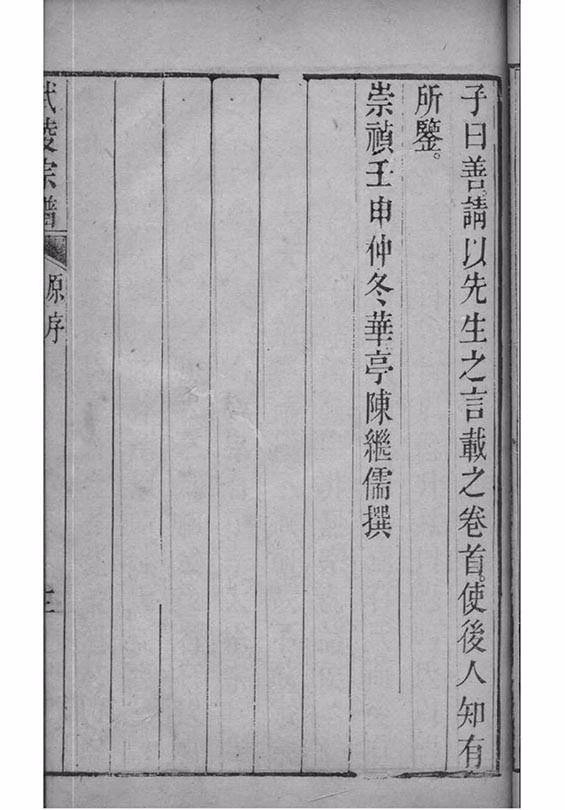 子曰善。請以先生之言載之卷首。使後人知有
所鑒。
崇禎壬申仲冬華亭陳繼儒撰
武陵宗譜
原序